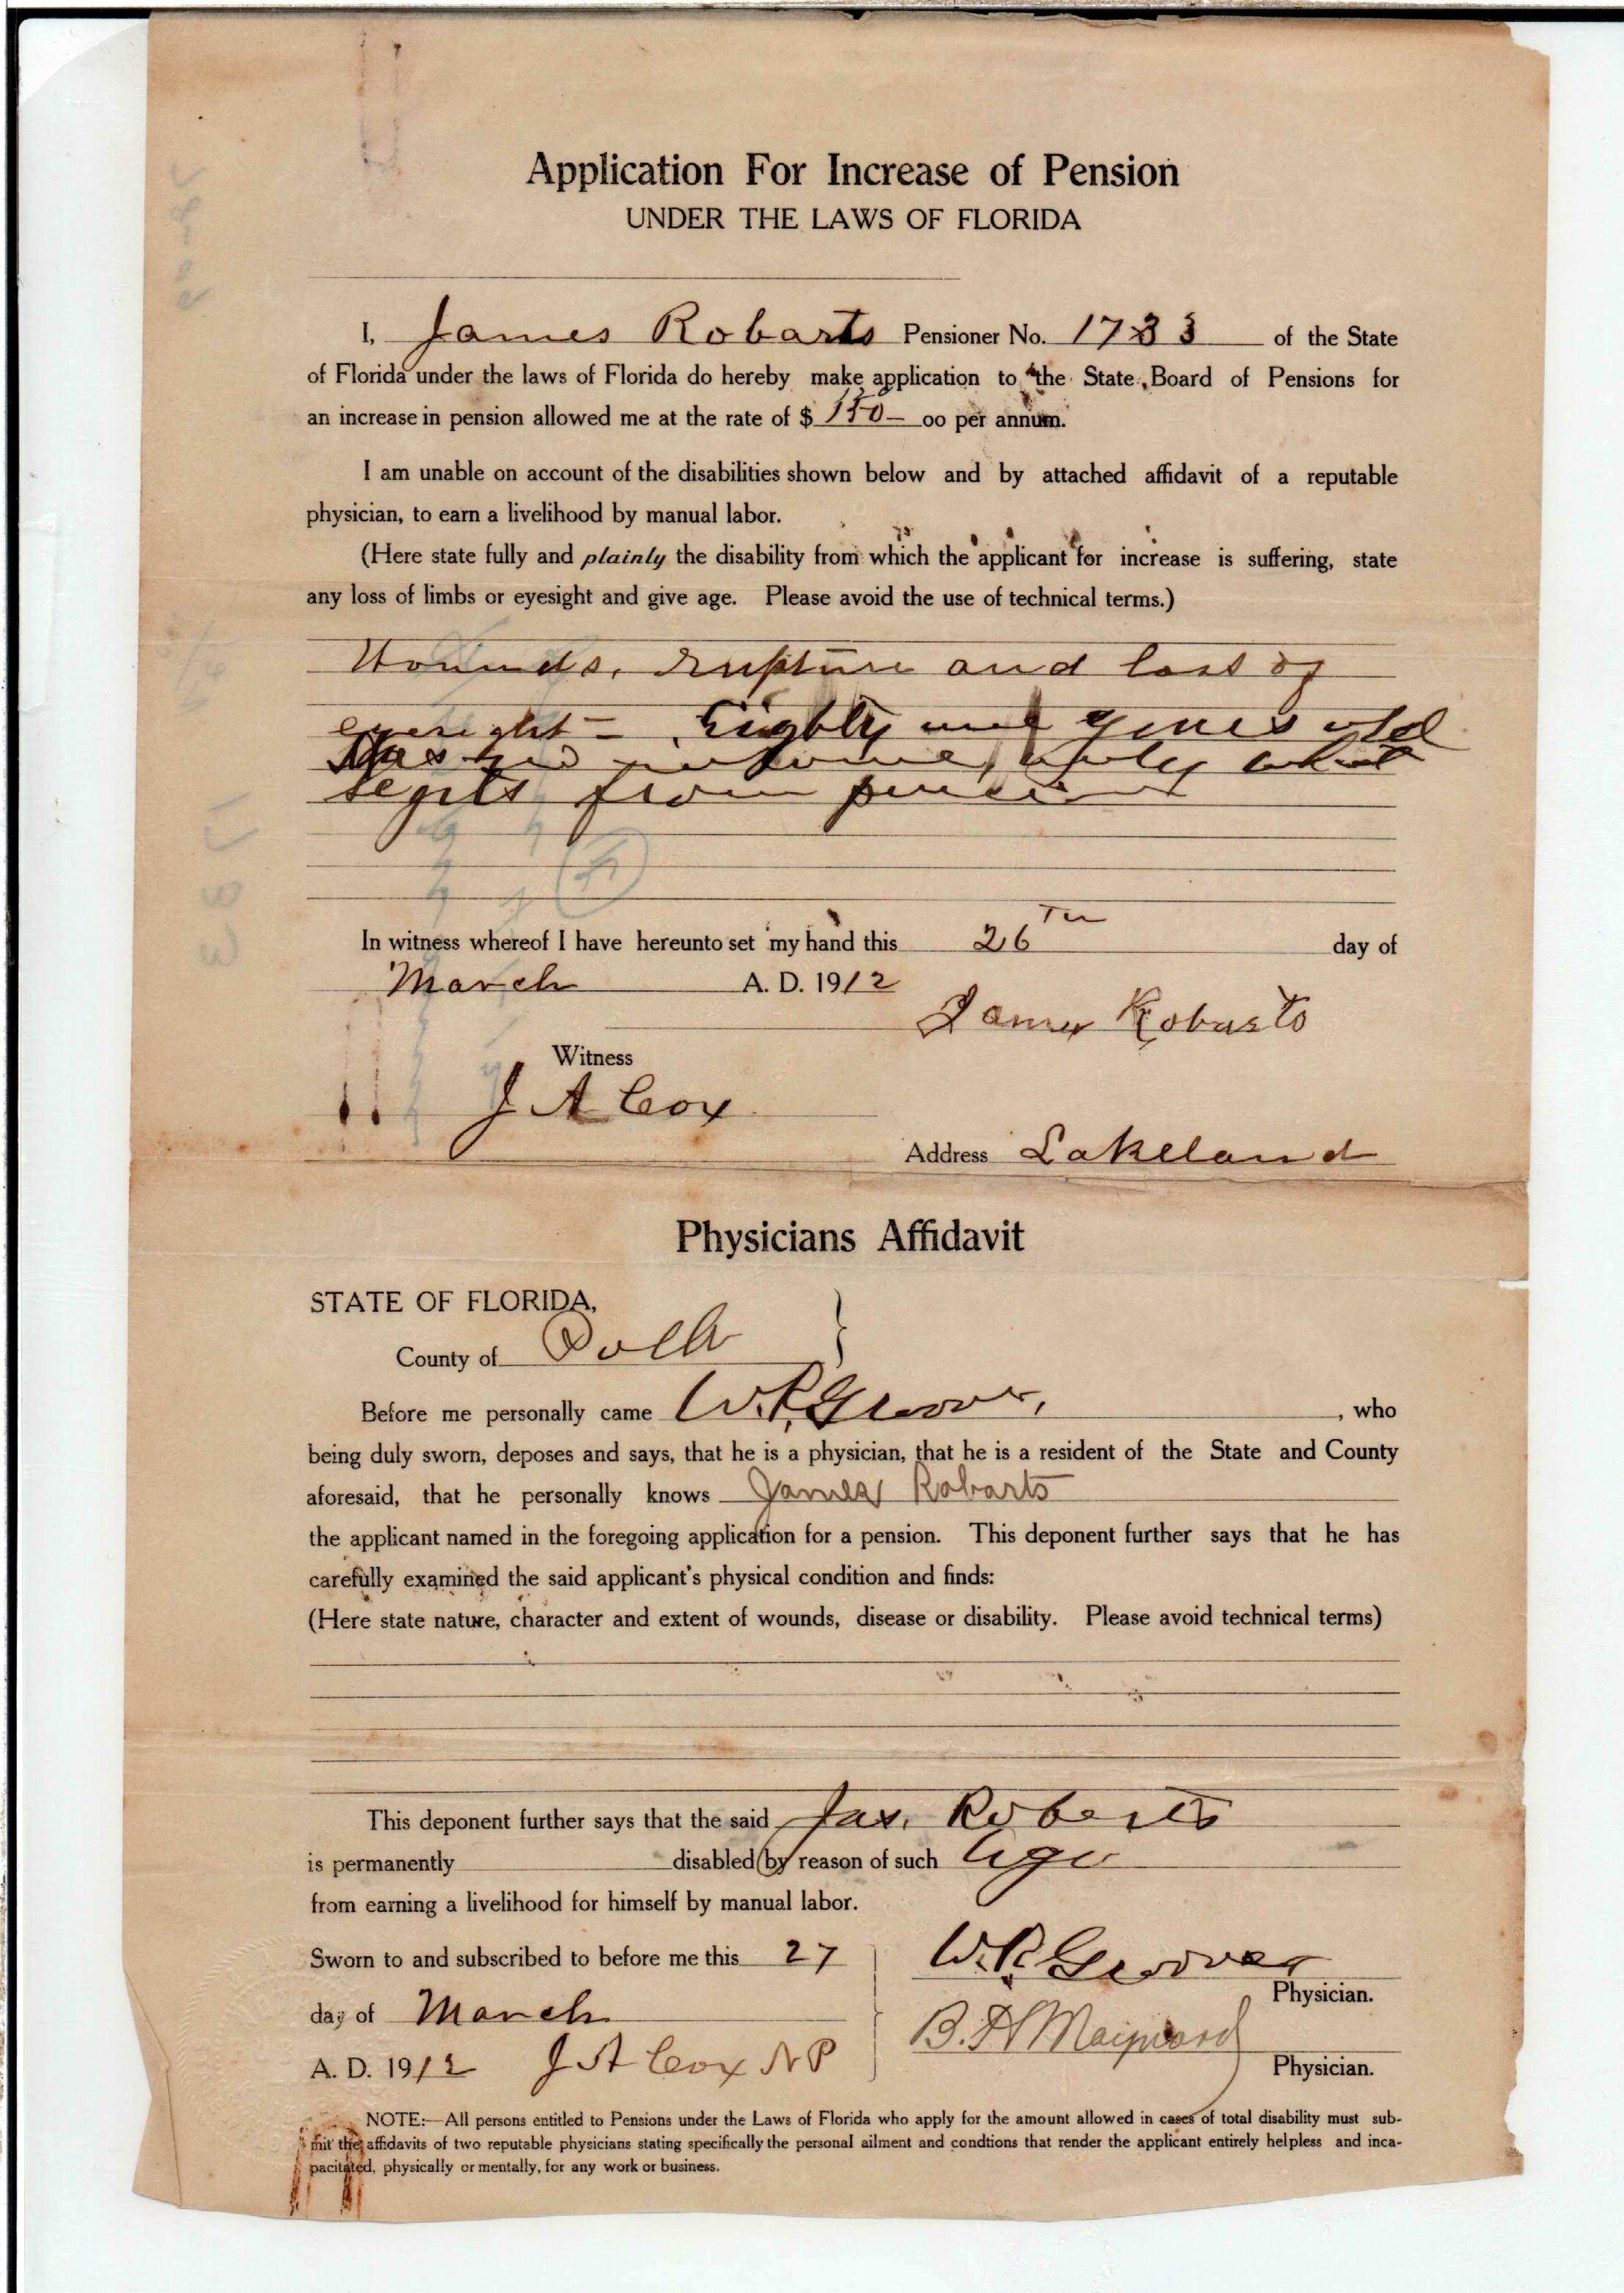 Application For Increase of Pension
UNDER THE LAWS OF FLORIDA
I, James Robarts Pensioner No. 1733 of the State
of Florida under the laws of Florida do hereby make application to the State Board of Pensions for
an increase in pension allowed me at the rate of $ 150- 00 per annum.
I am unable on account of the disabilities shown below and by attached affidavit of a reputable
physician, to earn a livelihood by manual labor.
(Here state fully and plainly the disability from which the applicant for increase is suffering, state
any loss of limbs or eyesight and give age. Please avoid the use of technical terms.)
Wounds, rupture and loss of
eyesight - Eighty one years old
Has no income, only what
gets from pension
In witness whereof I have hereunto set my hand this 26th day of
March A. D. 1912
James Robarts
Witness
J A Cox
Address Lakeland
Physicians Affidavit
STATE OF FLORIDA,
County of Polk }
Before me personally came W. R. Groover, , who
being duly sworn, deposes and says, that he is a physician, that he is a resident of the State and County
aforesaid, that he personally knows James Robarts
the applicant named in the foregoing application for a pension. This deponent further says that he has
carefully examined the said applicant's physical condition and finds:
(Here state nature, character and extent of wounds, disease or disability. Please avoid technical terms)
This deponent further says that the said Jas. Roberts
is permanently disabled by reason of such age
from earning a livelihood for himself by manual labor.
Sworn to and subscribed to before me this 27
W. R. Groover
Physician.
day of March
B. H
Physician.
A. D. 1912 J A Cox N P
NOTE:—All persons entitled to Pensions under the Laws of Florida who apply for the amount allowed in cases of total disability must sub-
mit the affidavits of two reputable physicians stating specifically the personal ailment and condtions that render the applicant entirely helpless and inca-
pacitated, physically or mentally, for any work or business.